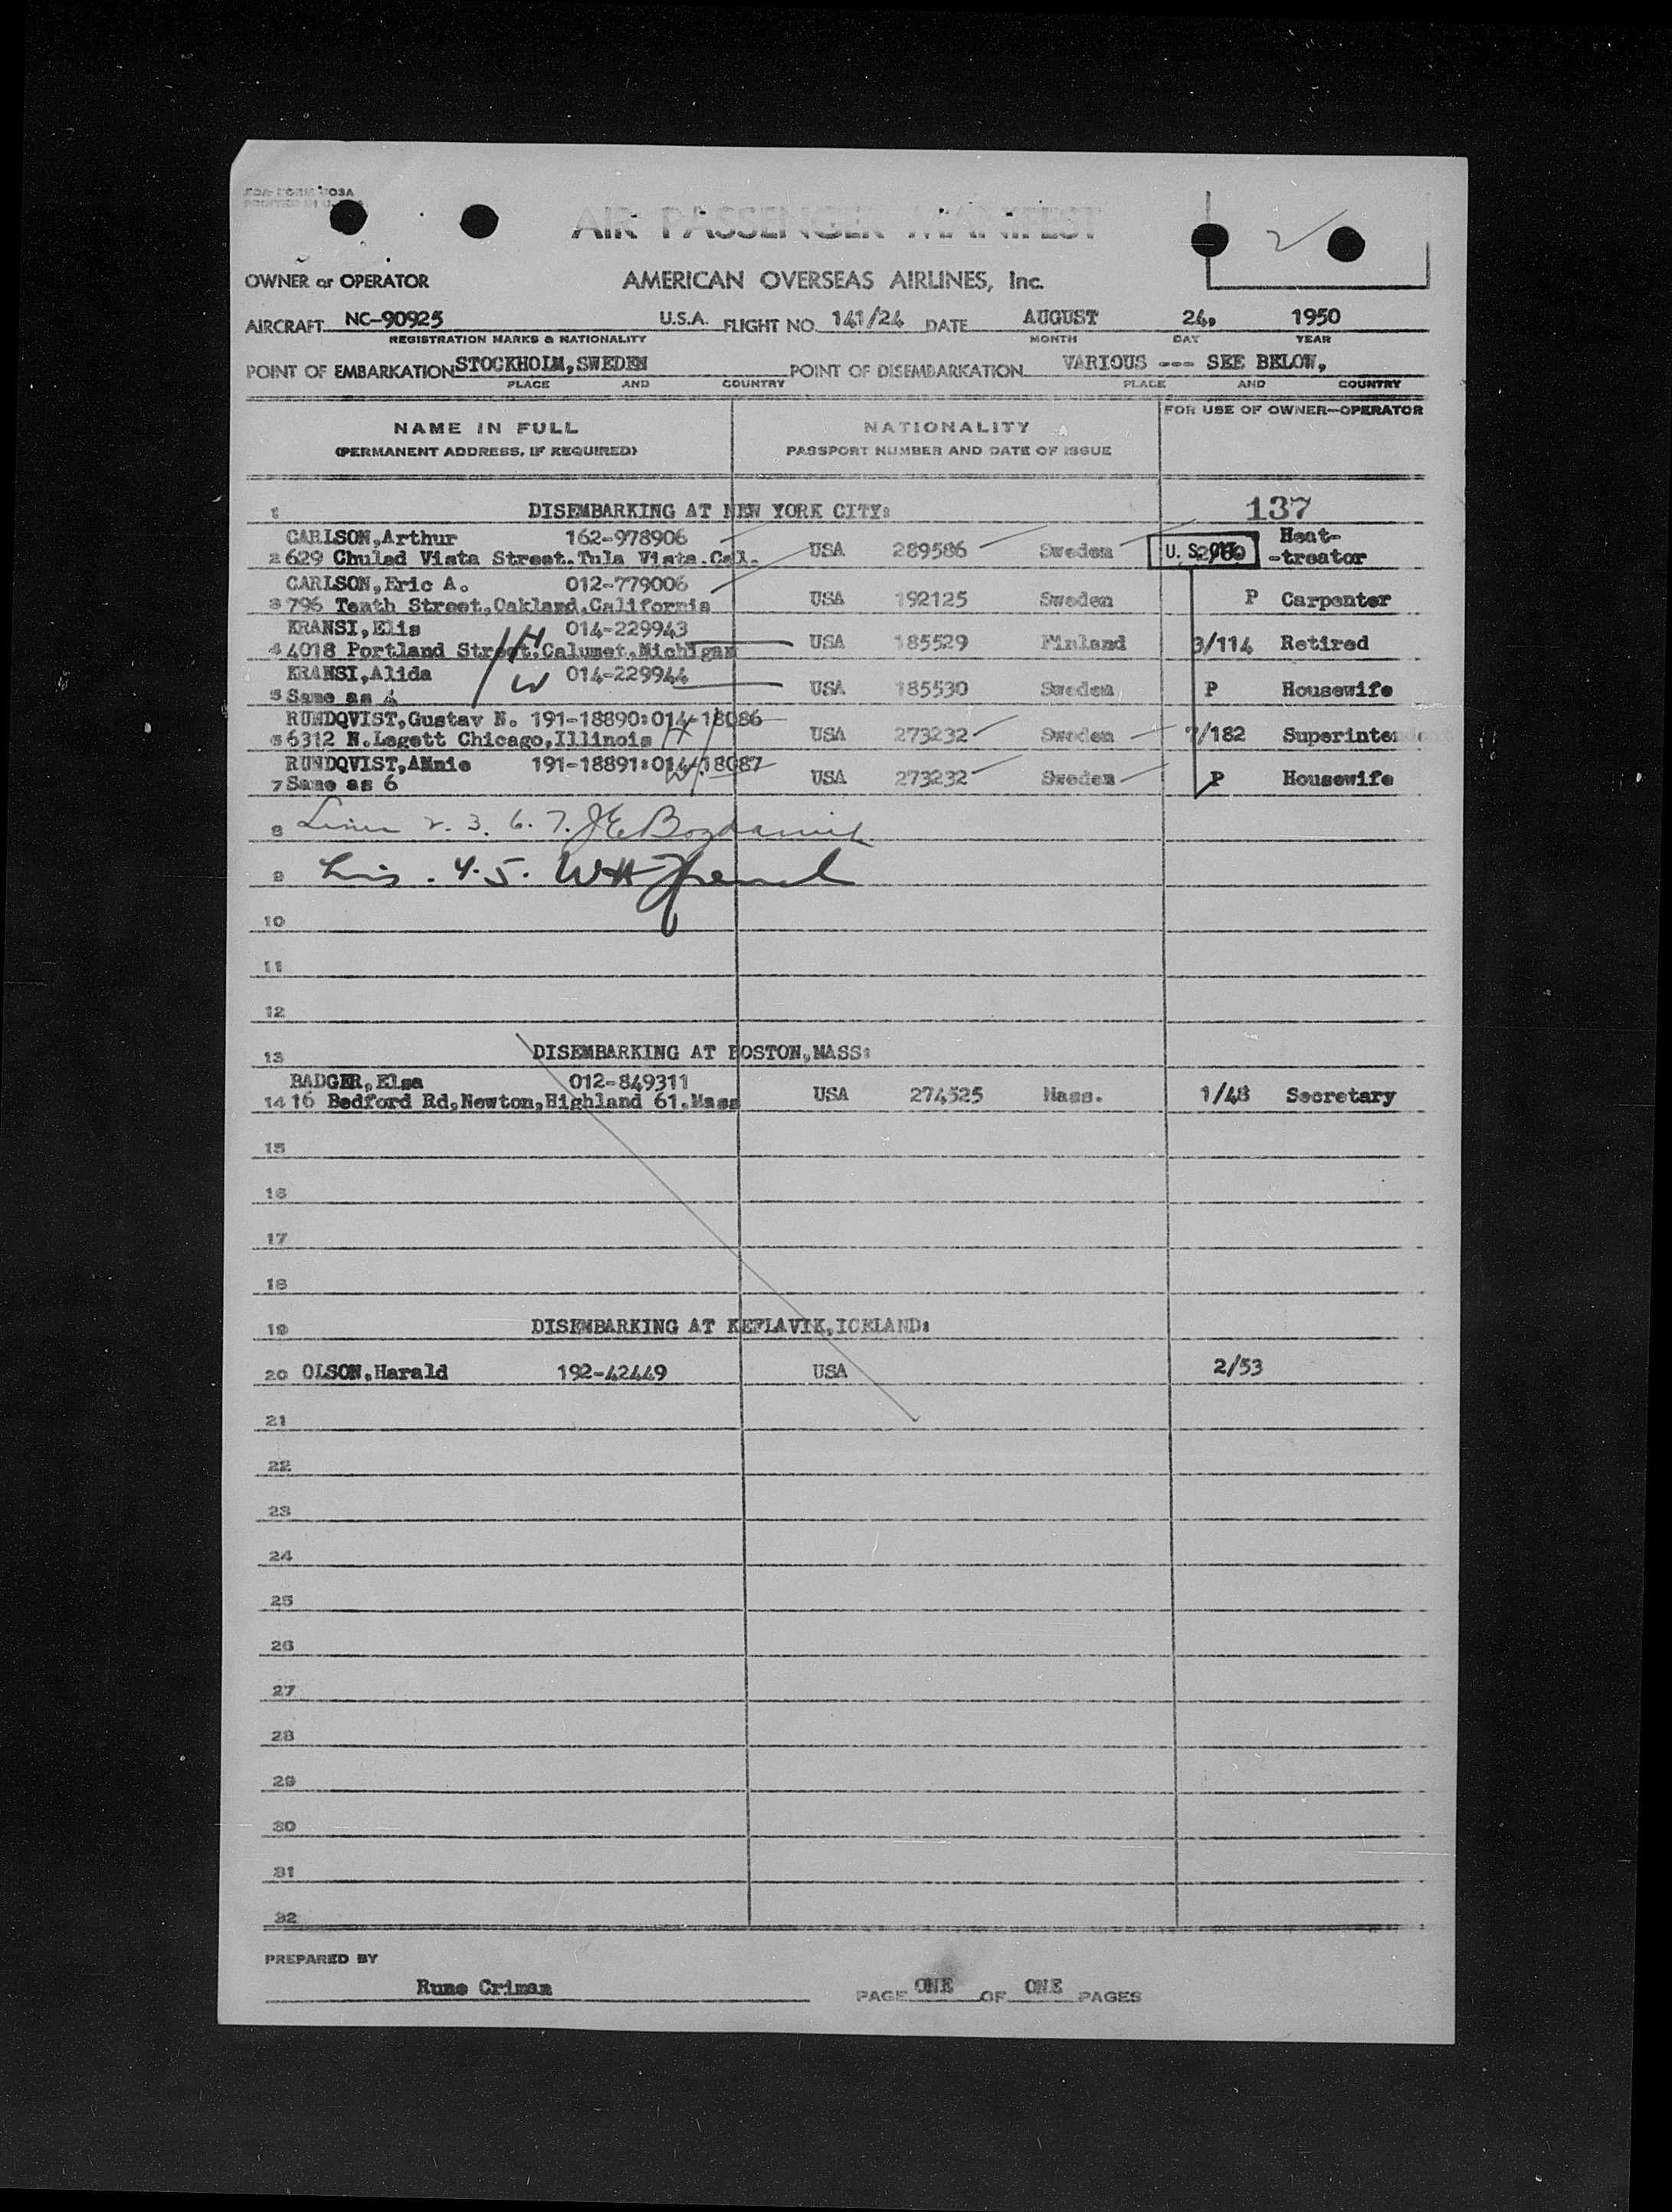 AIR PASSENGER MANIFEST
OWNER or OPERATOR AMERICAN OVERSEAS AIRLINES, Inc.
AIRCRAFT NC-90925 U.S.A. FLIGHT NO. 141/24 DATE AUGUST 24, 1950
REGISTRATION MARKS & NATIONALITY MONTH DAY YEAR
POINT OF EMBARKATION STOCKHOLM, SWEDEN POINT OF DISEMBARKATION VARIOUS --- SEE BELOW,
PLACE AND COUNTRY PLACE AND COUNTRY
FOR USE OF OWNER-OPERATOR
NAME IN FULL NATIONALITY
(PERMANENT ADDRESS, IF REQUIRED) PASSPORT NUMBER AND DATE OF ISSUE
1 DISEMBARKING AT NEW YORK CITY: 137
CARLSON,Arthur 162-978906 Heat-
2 629 Chulad Vista Street.Tula Vista.Cal. USA 289586 Sweden U.S. -treator
CARLSON,Eric A. 012-779006
3 796 Tenth Street,Oakland,California USA 192125 Sweden P Carpenter
KRANSI,Elis H 014-229943
4 4018 Portland Street.Calumet.Michigan USA 185529 Finland 3/114 Retired
KRANSI,Alida W 014-229944
5 Same as 4 USA 185530 Sweden P Housewife
RUNDQVIST,Gustav N. 191-18890:014-18086
6 6312 N.Legett Chicago,Illinois H USA 273232 Sweden 7/182 Superintendent
RUNDQVIST,ANnie 191-18891:014-18087
7 Same as 6 W USA 273232 Sweden P Housewife
8 Lines 2. 3. 6. 7.
9 Lis. 4.5.
10
11
12
13 DISEMBARKING AT BOSTON,MASS:
BADGER,Elsa 012-849311
14 16 Bedford Rd,Newton,Highland 61.Mass USA 274525 Mass. 1/48 Secretary
15
16
17
18
19 DISEMBARKING AT KEFLAVIK,ICELAND:
20 OLSON,Harald 192-42449 USA 2/53
21
22
23
24
25
26
27
28
29
30
31
32
PREPARED BY
Rune Criman PAGE ONE OF ONE PAGES